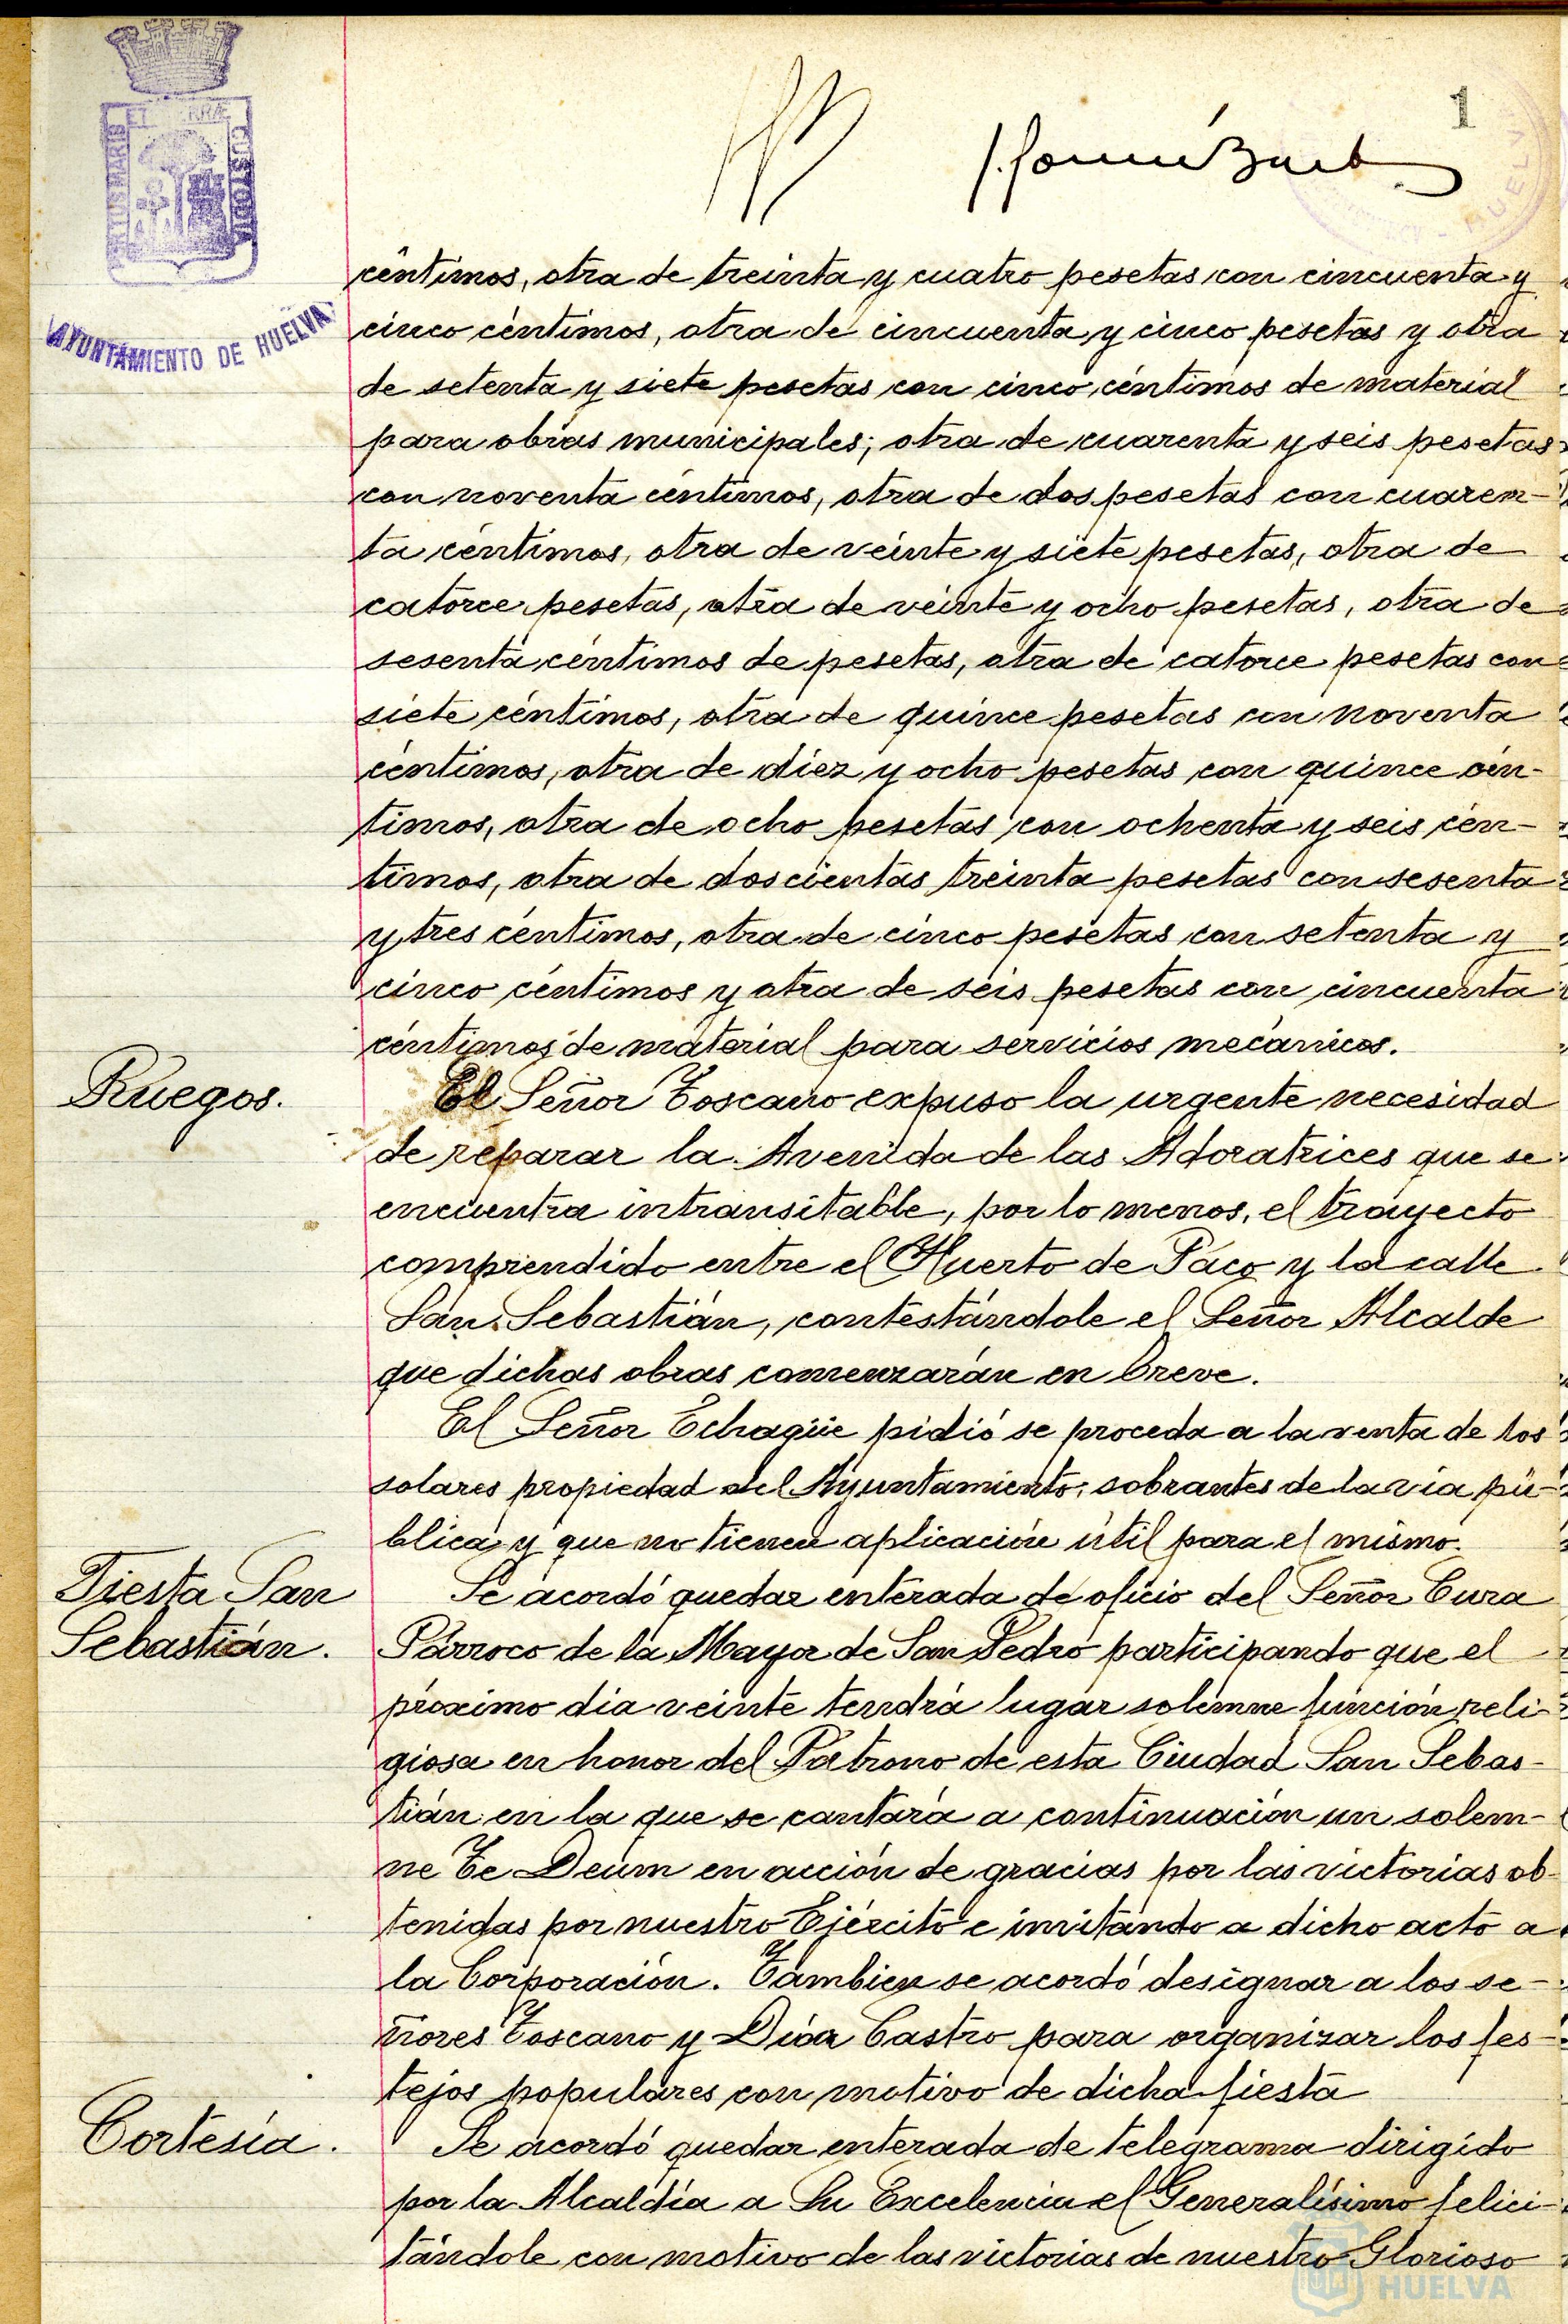 1
PORTUS MARIS ET TERRÆ CUSTODIA
AYUNTAMIENTO DE HUELVA
céntimos, otra de treinta y cuatro pesetas con cincuenta y
cinco céntimos, otra de cincuenta y cinco pesetas y otra
de setenta y siete pesetas con cinco céntimos de material
para obras municipales; otra de cuarenta y seis pesetas
con noventa céntimos, otra de dos pesetas con cuaren-
ta céntimos, otra de veinte y siete pesetas, otra de
catorce pesetas, otra de veinte y ocho pesetas, otra de
sesenta céntimos de pesetas, otra de catorce pesetas con
siete céntimos, otra de quince pesetas con noventa
céntimos, otra de diez y ocho pesetas con quince cén-
timos, otra de ocho pesetas con ochenta y seis cén-
timos, otra de doscientas treinta pesetas con sesenta
y tres céntimos, otra de cinco pesetas con setenta y
cinco céntimos y otra de seis pesetas con cincuenta
céntimos de material para servicios mecánicos.
Ruegos.
El Señor Toscano expuso la urgente necesidad
de reparar la Avenida de las Adoratrices que se
encuentra intransitable, por lo menos, el trayecto
comprendido entre el Huerto de Paco y la calle
San Sebastián, contestándole el Señor Alcalde
que dichas obras comenzarán en breve.
El Señor Echagüe pidió se proceda a la venta de los
solares propiedad del Ayuntamiento, sobrantes de la vía pú-
blica y que no tienen aplicación útil para el mismo.
Fiesta San
Sebastián.
Se acordó quedar enterada de oficio del Señor Cura
Párroco de la Mayor de San Pedro participando que el
próximo día veinte tendrá lugar solemne función reli-
giosa en honor del Patrono de esta Ciudad San Sebas-
tián en la que se cantará a continuación un solem-
ne Te Deum en acción de gracias por las victorias ob-
tenidas por nuestro Ejército e invitando a dicho acto a
la Corporación. Tambien se acordó designar a los se-
ñores Toscano y Díaz Castro para organizar los fes-
tejos populares con motivo de dicha fiesta
Cortesía.
Se acordó quedar enterada de telégrama dirigido
por la Alcaldía a Su Excelencia el Generalísimo felici-
tándole con motivo de las victorias de nuestro Glorioso
HUELVA